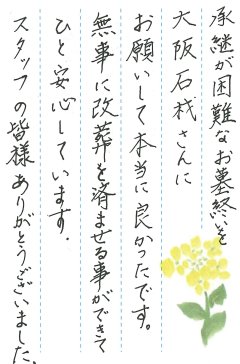 承継が困難なお墓終いを
大阪石材さんに
お願いして本当に良かったです。
無事に改葬を済ませる事ができて
ひと安心しています。
スタッフの皆様ありがとうございました。